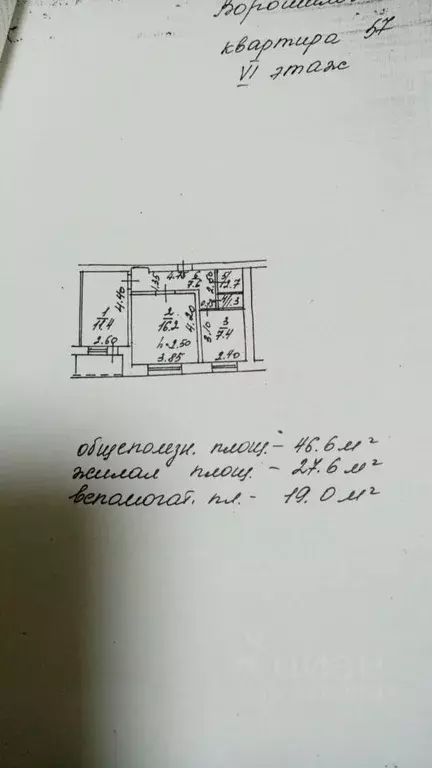 квартира 57
VI этаж
4.75
6
7.6
5
2.7
1.35
2.00
4
1.3
4.40
1
11.4
2
16.2
4.20
3.10
3
7.4
h=2.50
2.60
3.85
2.40
общеполезн. площ.- 46.6 м²
жилая площ. - 27.6 м²
вспомогат. пл.- 19.0 м²